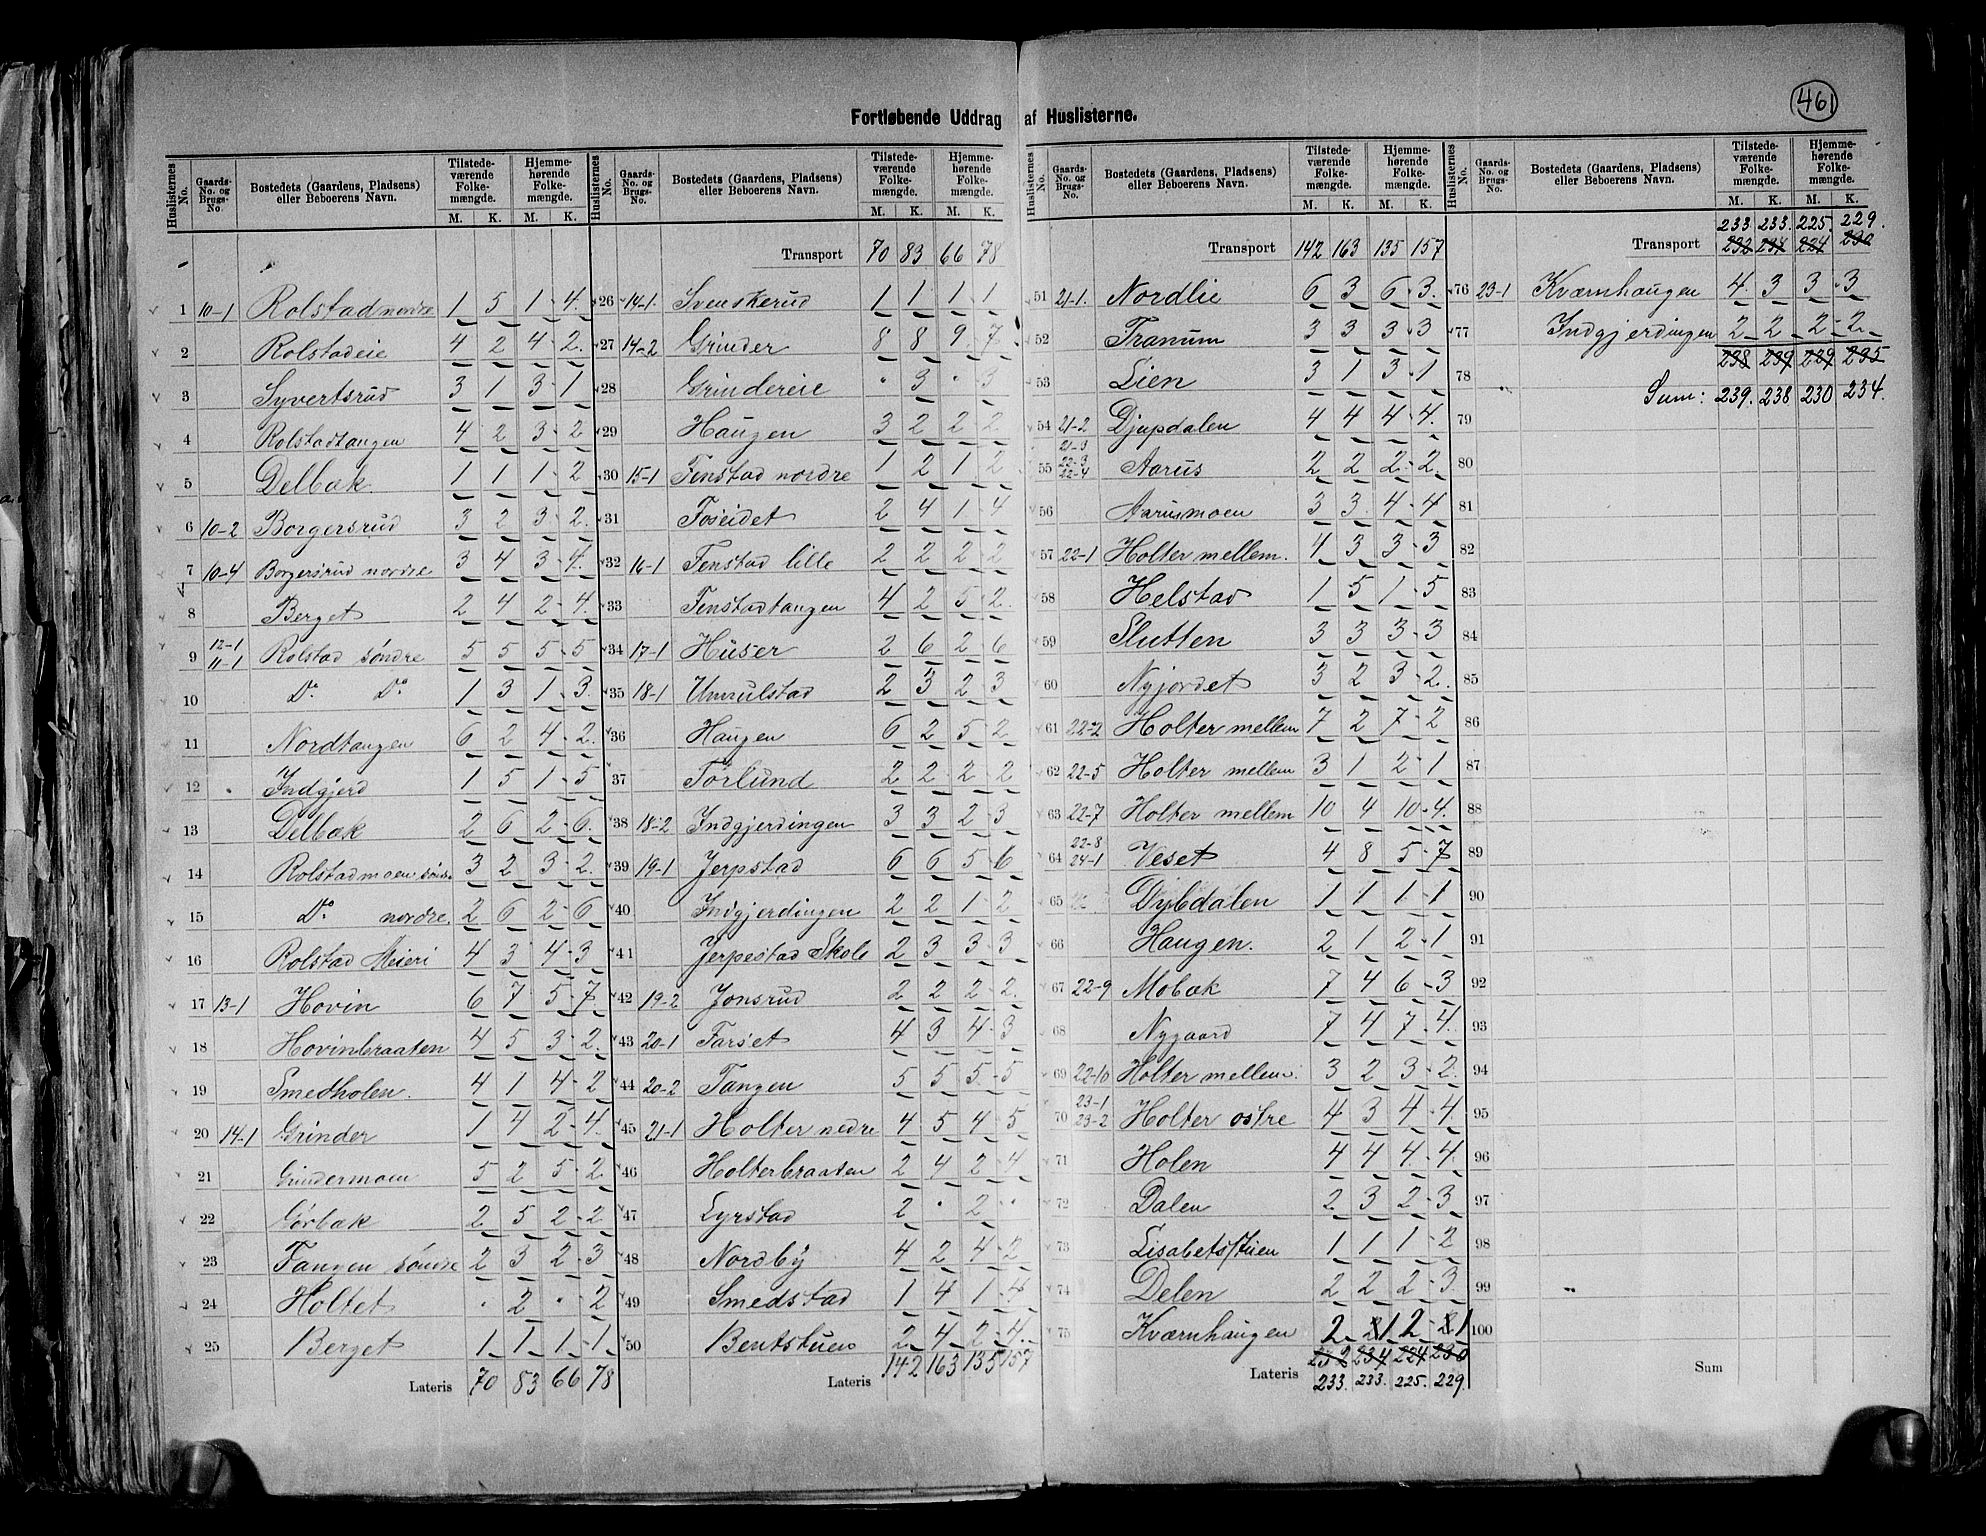 461
Fortløbende Uddrag af Huslisterne.
Huslisternes No. Gaards-No. og Brugs-No. Bostedets (Gaardens, Pladsens) eller Beboerens Navn. Tilstedeværende Folkemængde. M. K. Hjemmehørende Folkemængde. M. K.
1 10-1 Rolstad nordre 1 5 1 4
2 Rolstadeie 4 2 4 2
3 Syvertsrud 3 1 3 1
4 Rolstadtangen 4 2 3 2
5 Delbæk 1 1 1 2
6 10-2 Borgersrud 3 2 3 2
7 10-4 Borgersrud nordre 3 4 3 4
8 Berget 2 4 2 4
9 12-1 11-1 Rolstad søndre 5 5 5 5
10 Do Do 1 3 1 3
11 Nordtangen 6 2 4 2
12 Indgjerd 1 5 1 5
13 Delbæk 2 6 2 6
14 Rolstadmoen søndre 3 2 3 2
15 Do nordre 2 6 2 6
16 Rolstad Meieri 4 3 4 3
17 13-1 Hovin 6 7 5 7
18 Hovinbraaten 4 5 3 2
19 Smedholen 4 1 4 2
20 14-1 Grinder 1 4 2 4
21 Grindermoen 5 2 5 2
22 Gørbæk 2 5 2 2
23 Tangen søndre 2 3 2 3
24 Holtet " 2 " 2
25 Berget 1 1 1 1
Lateris 70 83 66 78
Huslisternes No. Gaards-No. og Brugs-No. Bostedets (Gaardens, Pladsens) eller Beboerens Navn. Tilstedeværende Folkemængde. M. K. Hjemmehørende Folkemængde. M. K.
Transport 70 83 66 78
26 14-1 Svenskerud 1 1 1 1
27 14-2 Grinder 8 8 9 7
28 Grindereie " 3 " 3
29 Haugen 3 2 2 2
30 15-1 Tenstad nordre 1 2 1 2
31 Foseidet 2 4 1 4
32 16-1 Tenstad lille 2 2 2 2
33 Tenstadtangen 4 2 5 2
34 17-1 Huser 2 6 2 6
35 18-1 Umulstad 2 3 2 3
36 Haugen 6 2 5 2
37 Torlund 2 2 2 2
38 18-2 Indgjerdingen 3 3 2 3
39 19-1 Jerpstad 6 6 5 6
40 Indgjerdingen 2 2 1 2
41 Jerpestad Skole 2 3 3 3
42 19-2 Jonsrud 2 2 2 2
43 20-1 Farset 4 3 4 3
44 20-2 Tangen 5 5 5 5
45 21-1 Holter nedre 4 5 4 5
46 Holterbraaten 2 4 2 4
47 Lyrstad 2 " 2 "
48 Nordby 4 2 4 2
49 Smedstad 1 4 1 4
50 Bentstuen 2 4 2 4
Lateris 142 163 135 157
Huslisternes No. Gaards-No. og Brugs-No. Bostedets (Gaardens, Pladsens) eller Beboerens Navn. Tilstedeværende Folkemængde. M. K. Hjemmehørende Folkemængde. M. K.
Transport 142 163 135 157
51 21-1 Nordlie 6 3 6 3
52 Tranum 3 3 3 3
53 Lien 3 1 3 1
54 21-2 Djupdalen 4 4 4 4
55 21-3 22-3 22-4 Aarus 2 2 2 2
56 Aarusmoen 3 3 4 4
57 22-1 Holter mellem 4 3 3 3
58 Helstad 1 5 1 5
59 Slutten 3 3 3 3
60 Nyjordet 3 2 3 2
61 22-2 Holter mellem 7 2 7 2
62 22-5 Holter mellem 3 1 2 1
63 22-7 Holter mellem 10 4 10 4
64 22-8 24-1 Veset 4 8 5 7
65 Dybdalen 1 1 1 1
66 Haugen. 2 1 2 1
67 22-9 Mobæk 7 4 6 3
68 Nygaard 7 4 7 4
69 22-10 Holter mellem 3 2 3 2
70 23-1 23-2 Holter østre 4 3 4 4
71 Holen 4 4 4 4
72 Dalen 2 3 2 3
73 Lisabetsstuen 1 1 1 2
74 Delen 2 2 2 3
75 Kværnhaugen 2 1 2 1
232 234 224 230
Lateris 233. 233. 225. 229.
Huslisternes No. Gaards-No. og Brugs-No. Bostedets (Gaardens, Pladsens) eller Beboerens Navn. Tilstedeværende Folkemængde. M. K. Hjemmehørende Folkemængde. M. K.
233. 233. 225. 229.
Transport 232 234 224 230
76 23-1 Kværnhaugen 4 3 3 3
77 Indgjerdingen 2 2 2 2
238 239 229 235
78
Sum: 239. 238 230 234.
79
80
81
82
83
84
85
86
87
88
89
90
91
92
93
94
95
96
97
98
99
100
Sum